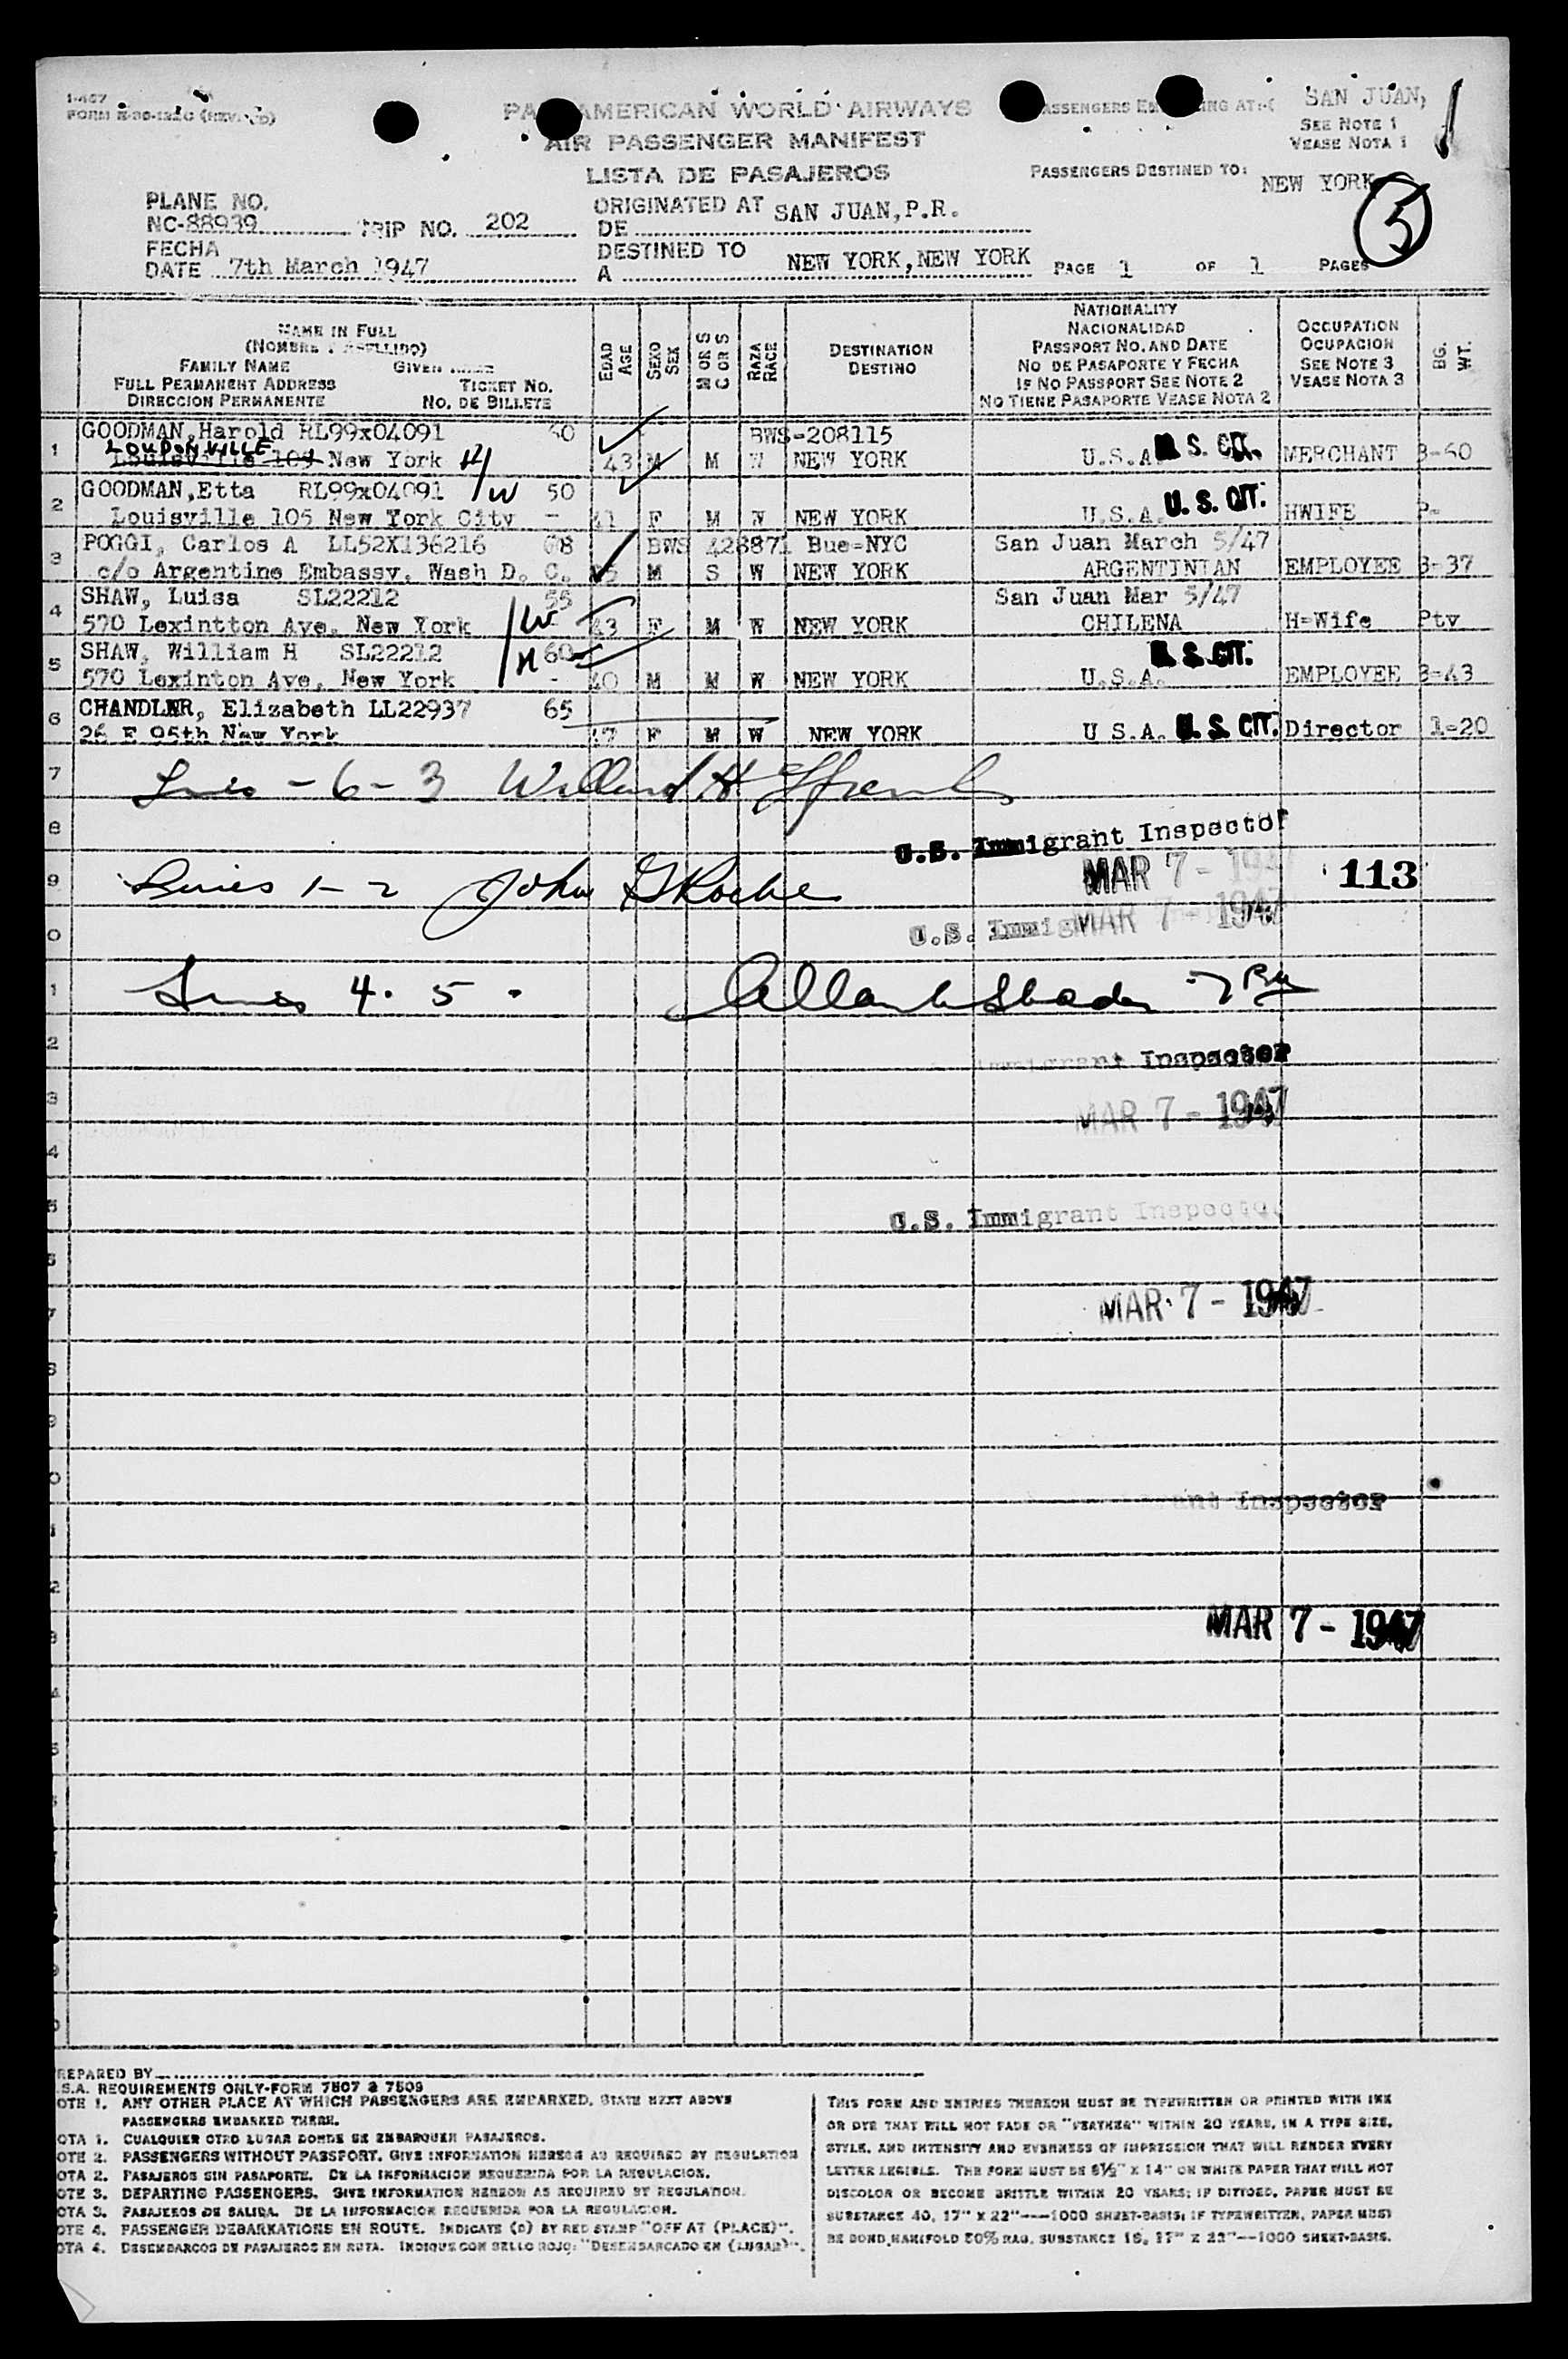 I-467
PAN AMERICAN WORLD AIRWAYS
AIR PASSENGER MANIFEST
LISTA DE PASAJEROS
SAN JUAN,
SEE NOTE 1
VEASE NOTA 1
PASSENGERS DESTINED TO:
NEW YORK
5
PLANE NO.
NC-88939 TRIP NO. 202
FECHA
DATE 7th March 1947
ORIGINATED AT SAN JUAN,P.R.
DE
DESTINED TO NEW YORK,NEW YORK
A
PAGE 1 OF 1 PAGES
NAME IN FULL
FAMILY NAME GIVEN
FULL PERMANENT ADDRESS TICKET NO.
DIRECCION PERMANENTE NO. DE BILLETE
EDAD AGE
SEXO SEX
M OR S C OR S
RAZA RACE
DESTINATION
DESTINO
NATIONALITY
NACIONALIDAD
PASSPORT NO. AND DATE
NO DE PASAPORTE Y FECHA
IF NO PASSPORT SEE NOTE 2
NO TIENE PASAPORTE VEASE NOTA 2
OCCUPATION
OCUPACION
SEE NOTE 3
VEASE NOTA 3
BG. WT.
1 GOODMAN,Harold RL99x04091 BWS-208115
LOUDONVILLE
New York 43 M M W NEW YORK U.S.A. U. S. CIT. MERCHANT
2 GOODMAN,Etta RL99x04091 W 50
Louisville 105 New York City - 41 F M W NEW YORK U.S.A. U. S. CIT. HWIFE
3 POGGI, Carlos A LL52X136216 BWS 428871 Bue=NYC San Juan March 5/47
c/o Argentine Embassy, Wash D. C. M S W NEW YORK ARGENTINIAN EMPLOYEE 3-37
4 SHAW, Luisa SL22212 55 San Juan Mar 5/47
570 Lexintton Ave. New York W 43 F M W NEW YORK CHILENA H=Wife Pty
5 SHAW, William H SL22212 H 60 U. S. CIT.
570 Lexinton Ave, New York - 40 M M W NEW YORK U.S.A. EMPLOYEE 3-43
6 CHANDLER, Elizabeth LL22937 65
26 E 95th New York 47 F M W NEW YORK U S.A. U. S. CIT. Director 1-20
7 Lines - 6 - 3
8 U.S. Immigrant Inspector
MAR 7 - 1947
9 Lines 1 - 2 John G Roche 113
MAR 7 - 1947
Lines 4. 5.
Immigrant Inspector
MAR 7 - 1947
U.S. Immigrant Inspector
MAR 7 - 1947
Inspector
MAR 7 - 1947
REPARED BY
.S.A. REQUIREMENTS ONLY-FORM 7507 & 7509
OTE 1. ANY OTHER PLACE AT WHICH PASSENGERS ARE EMBARKED, STATE NEXT ABOVE
PASSENGERS EMBARKED THERE.
OTA 1. CUALQUIER OTRO LUGAR DONDE SE EMBARQUEN PASAJEROS.
OTE 2. PASSENGERS WITHOUT PASSPORT. GIVE INFORMATION HEREON AS REQUIRED BY REGULATION
OTA 2. PASAJEROS SIN PASAPORTE. DE LA INFORMACION REQUERIDA POR LA REGULACION.
OTE 3. DEPARTING PASSENGERS. GIVE INFORMATION HEREON AS REQUIRED BY REGULATION.
OTA 3. PASAJEROS DE SALIDA. DE LA INFORMACION REQUERIDA POR LA REGULACION.
OTE 4. PASSENGER DEBARKATIONS EN ROUTE. INDICATE (D) BY RED STAMP "OFF AT (PLACE)".
OTA 4. DESEMBARCOS DE PASAJEROS EN RUTA. INDIQUE CON SELLO ROJO: "DESEMBARCADO EN (LUGAR)".
THIS FORM AND ENTRIES THEREON MUST BE TYPEWRITTEN OR PRINTED WITH INK
OR DYE THAT WILL NOT FADE OR "FEATHER" WITHIN 20 YEARS, IN A TYPE SIZE,
STYLE, AND INTENSITY AND EVENNESS OF IMPRESSION THAT WILL RENDER EVERY
LETTER LEGIBLE. THE FORM MUST BE 8½" X 14" ON WHITE PAPER THAT WILL NOT
DISCOLOR OR BECOME BRITTLE WITHIN 20 YEARS; IF DITTOED, PAPER MUST BE
SUBSTANCE 40, 17" X 22"---1000 SHEET-BASIS; IF TYPEWRITTEN, PAPER MUST
BE BOND, MANIFOLD 50% RAG, SUBSTANCE 16, 17" X 22"--1000 SHEET-BASIS.